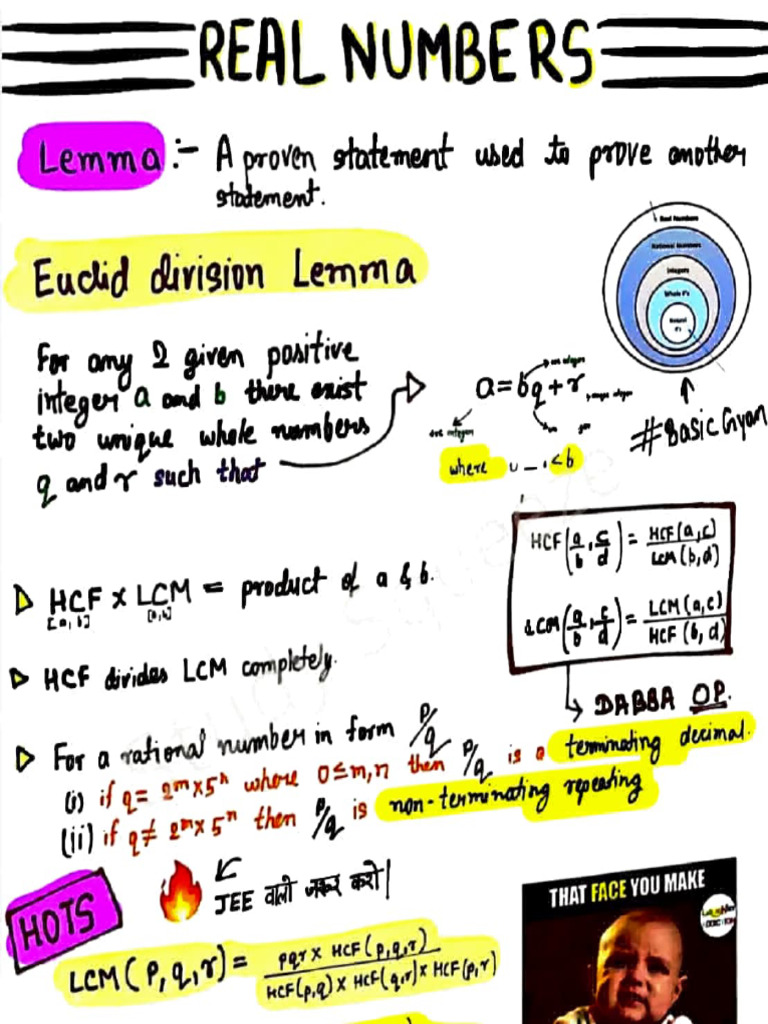 REAL NUMBERS
Lemma :- A proven statement used to prove another
statement.
Euclid division Lemma
Real Numbers
Rational Numbers
Integers
Whole #'s
Natural
#'s
#Basic Gyan
For any 2 given positive
integer a and b there exist
two unique whole numbers
q and r such that
a = bq + r
+ve integer
where < b
HCF(a/b, c/d) = HCF(a,c)/LCM(b,d)
LCM(a/b, c/d) = LCM(a,c)/HCF(b,d)
DABBA OP.
HCF × LCM = product of a & b.
[a,b] [a,b]
HCF divides LCM completely.
For a rational number in form p/q
(i) if q = 2^m × 5^n where 0 ≤ m,n then p/q is a terminating decimal.
(ii) if q ≠ 2^m × 5^n then p/q is non-terminating repeating
JEE वाले जरूर करो|
HOTS
LCM(p,q,r) = pqr × HCF(p,q,r)/HCF(p,q) × HCF(q,r) × HCF(p,r)
THAT FACE YOU MAKE